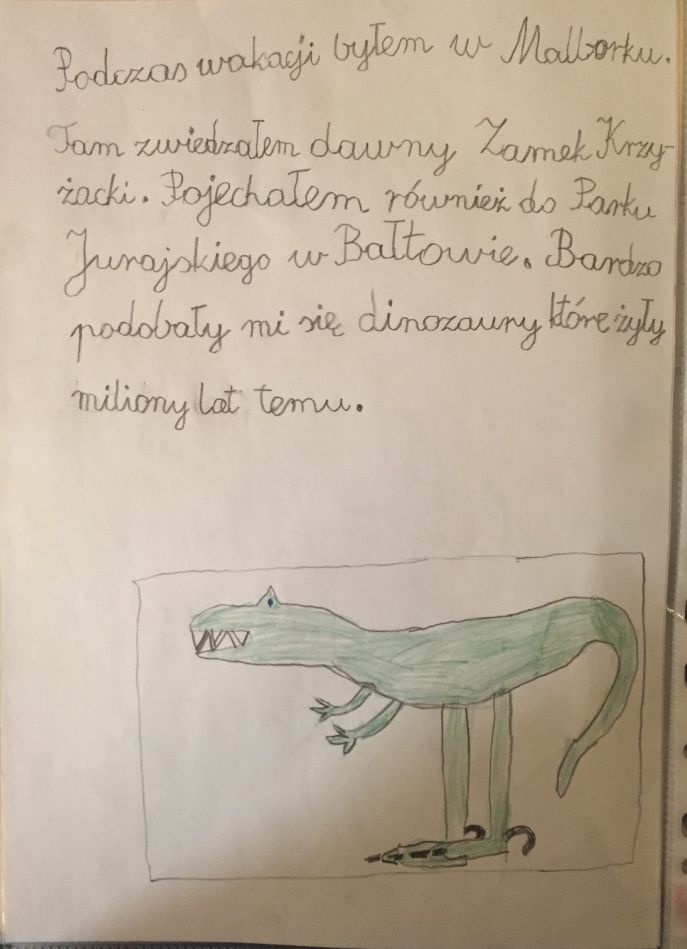 Podczas wakacji byłem w Malborku.
Tam zwiedzałem dawny Zamek Krzy-
żacki. Pojechałem również do Parku
Jurajskiego w Bałtowie. Bardzo
podobały mi się dinozaury które żyły
miliony lat temu.